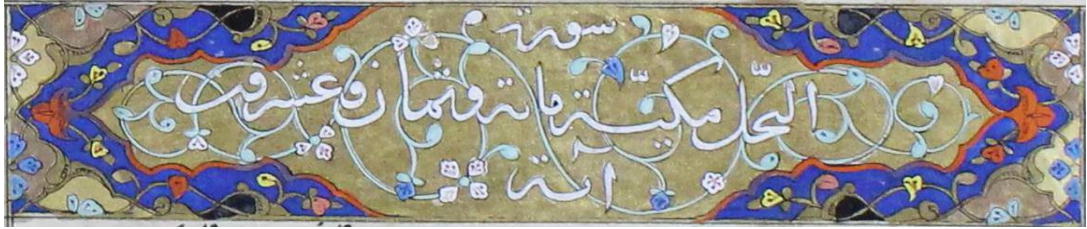 سورة
النحل مكيّة مائة وثمان وعشرون
اية